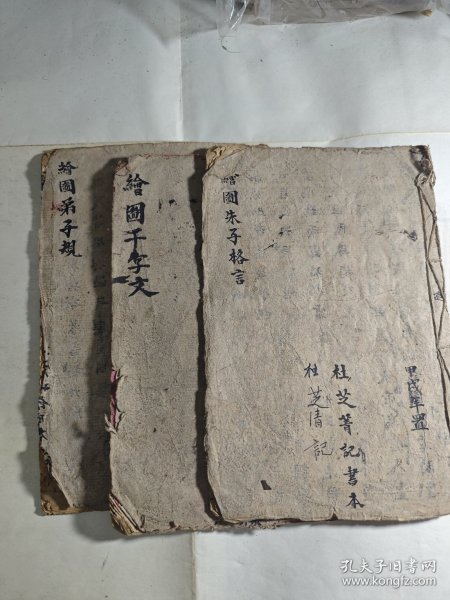 繪圖弟子規
繪圖千字文
繪圖朱子格言
甲戌年置
杜芝菁記書本
杜芝清記
孔夫子旧书网
www.kongfz.com